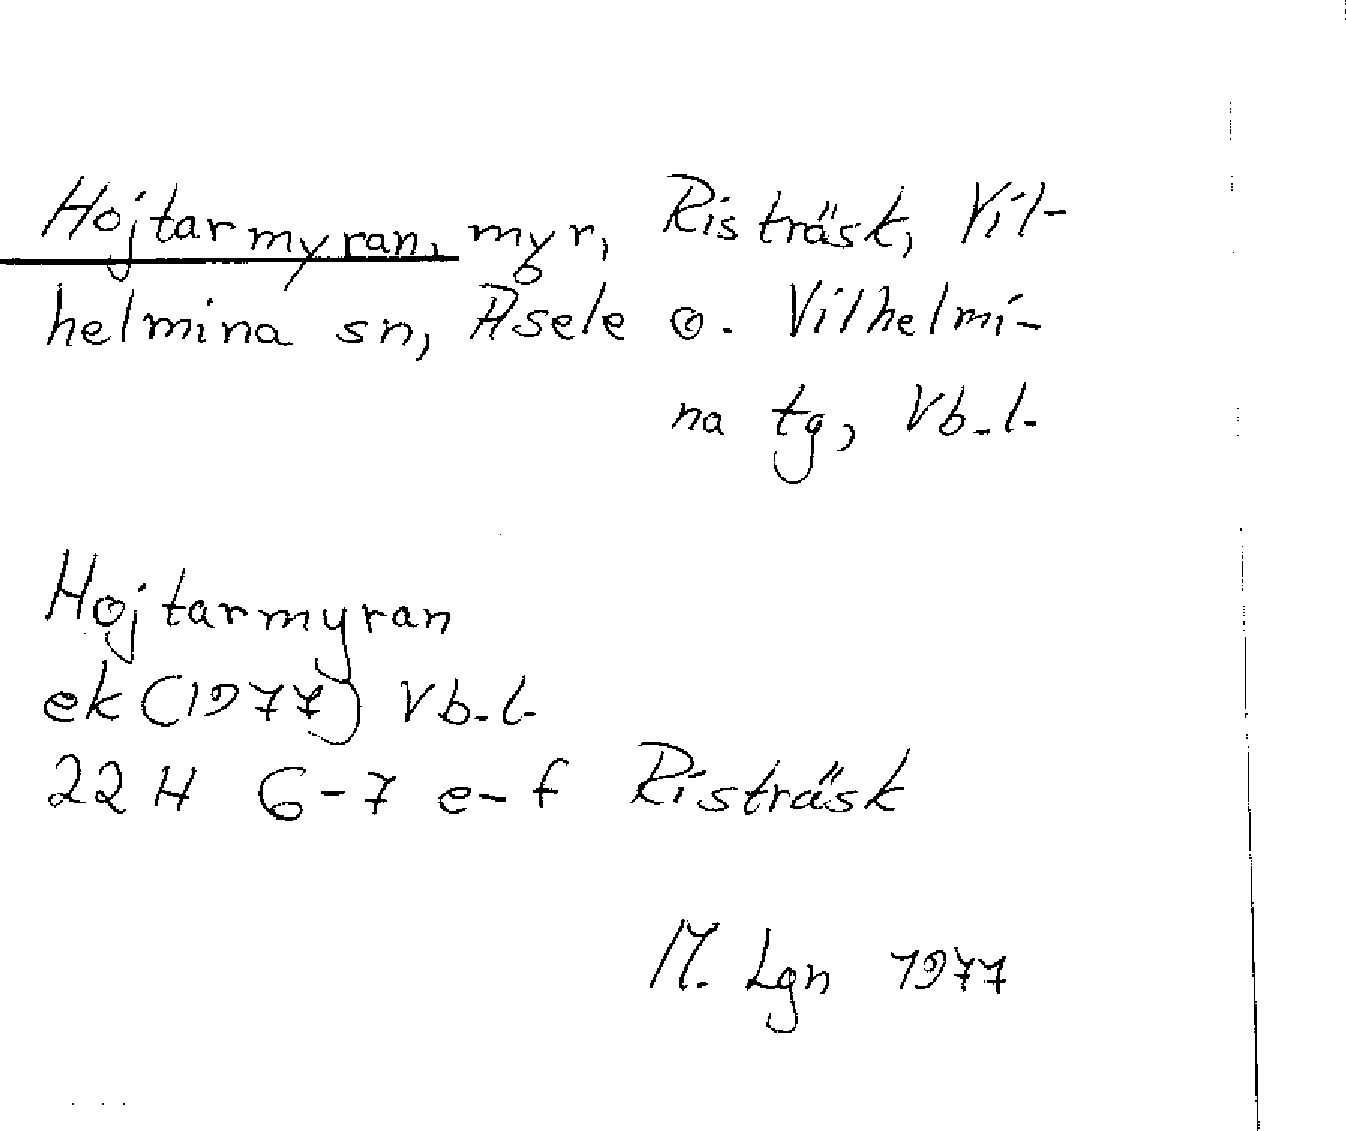 Hojtarmyran, myr, Risträsk, Vil-
helmina sn, Åsele o. Vilhelmi-
na tg, Vb.l.
Hojtarmyran
ek (1977) Vb.l.
22 H 6-7 e-f Risträsk
M. Lgn 1977